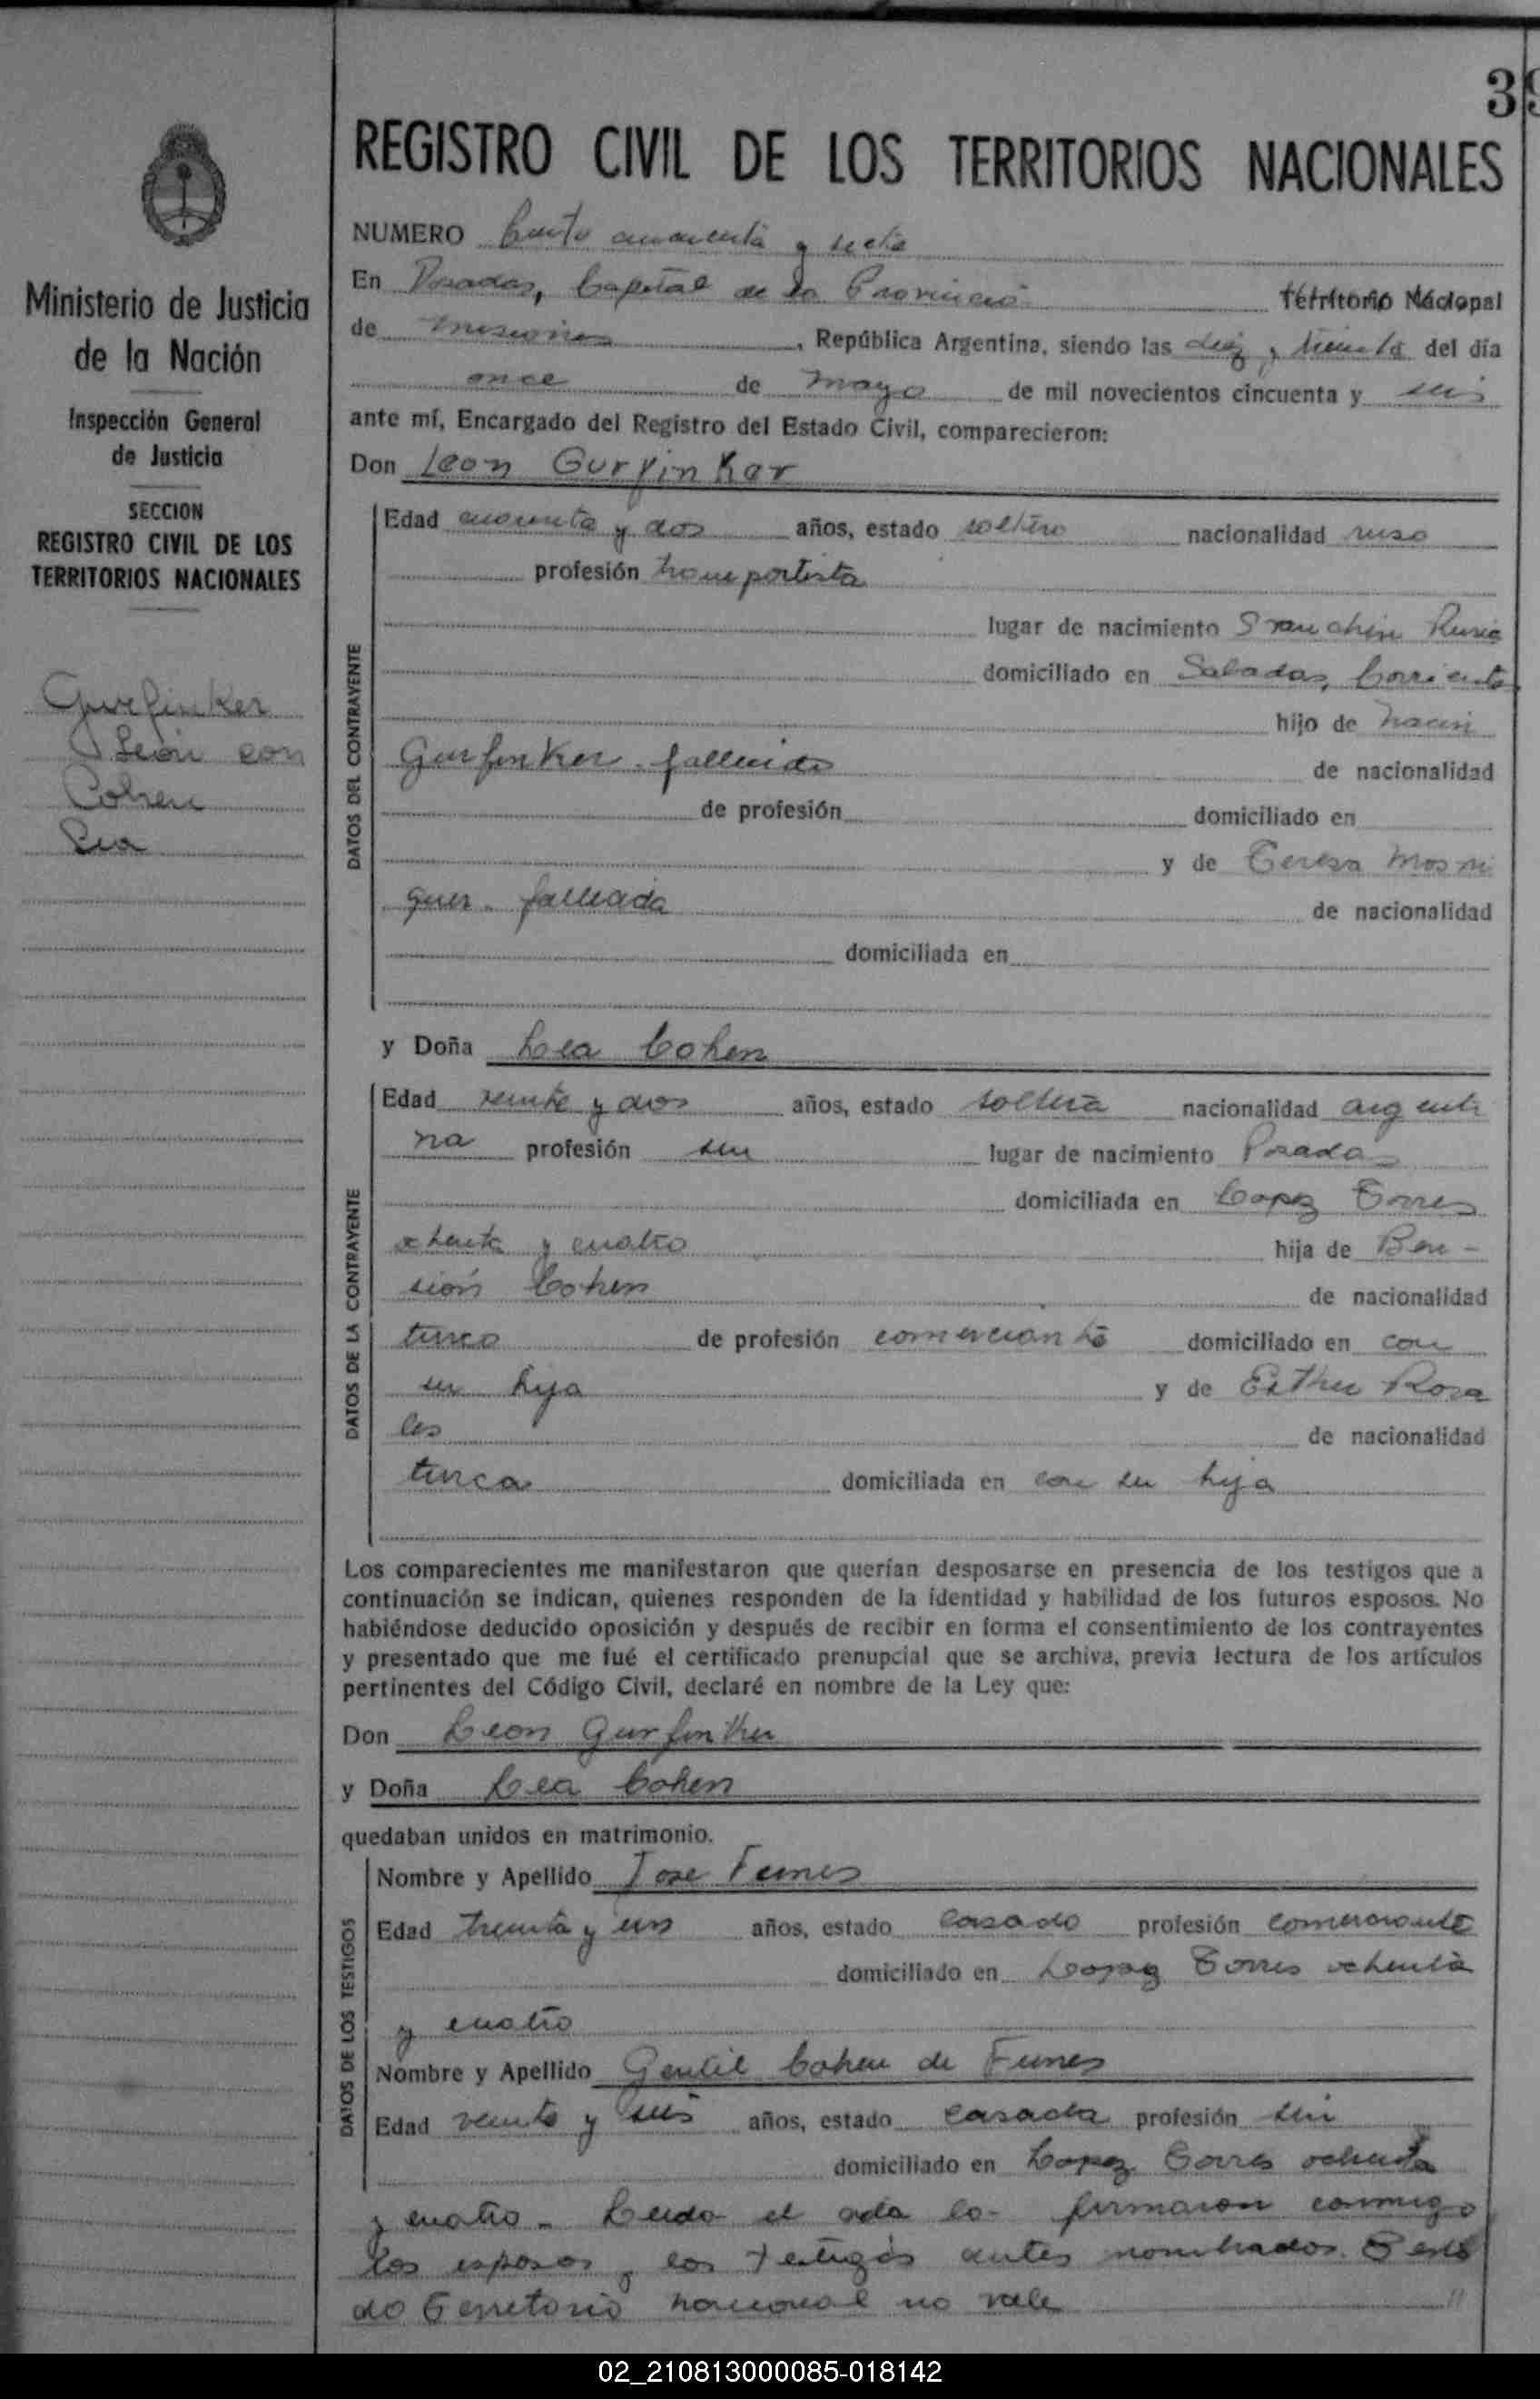 39
REGISTRO CIVIL DE LOS TERRITORIOS NACIONALES
Ministerio de Justicia
de la Nación
Inspección General
de Justicia
SECCION
REGISTRO CIVIL DE LOS
TERRITORIOS NACIONALES
Gurfinker
León con
Cohen
Lea
NUMERO Ciento cuarenta y siete
En Posadas, Capital de la Provincia Territorio Nacional
de Misiones, República Argentina, siendo las diez y treinta del día
once de mayo de mil novecientos cincuenta y seis
ante mí, Encargado del Registro del Estado Civil, comparecieron:
Don Leon Gurfinker
DATOS DEL CONTRAYENTE
Edad cuarenta y dos años, estado soltero nacionalidad ruso
profesión transportista
lugar de nacimiento Rusia
domiciliado en Saladas, Corrientes
hijo de
Gurfinker. fallecido de nacionalidad
de profesión domiciliado en
y de Teresa Mosni
quer. fallecida de nacionalidad
domiciliada en
y Doña Lea Cohen
DATOS DE LA CONTRAYENTE
Edad veinte y dos años, estado soltera nacionalidad argenti
na profesión sin lugar de nacimiento Posadas
domiciliada en Lopez Torres
ochenta y cuatro hija de Ben-
sión Cohen de nacionalidad
turco de profesión comerciante domiciliado en con
su hija y de Esther Rosa
les de nacionalidad
turca domiciliada en con su hija
Los comparecientes me manifestaron que querían desposarse en presencia de los testigos que a
continuación se indican, quienes responden de la identidad y habilidad de los futuros esposos. No
habiéndose deducido oposición y después de recibir en forma el consentimiento de los contrayentes
y presentado que me fué el certificado prenupcial que se archiva, previa lectura de los artículos
pertinentes del Código Civil, declaré en nombre de la Ley que:
Don Leon Gurfinker
y Doña Lea Cohen
quedaban unidos en matrimonio.
DATOS DE LOS TESTIGOS
Nombre y Apellido Jose Funes
Edad treinta y un años, estado casado profesión comerciante
domiciliado en Lopez Torres ochenta
y cuatro
Nombre y Apellido Gentil Cohen de Funes
Edad veinte y seis años, estado casada profesión sin
domiciliado en Lopez Torres ochenta
y cuatro. Leida el acta la firmaron conmigo
los esposos y los testigos antes nombrados. Testa
do Territorio nacional no vale
02_210813000085-018142